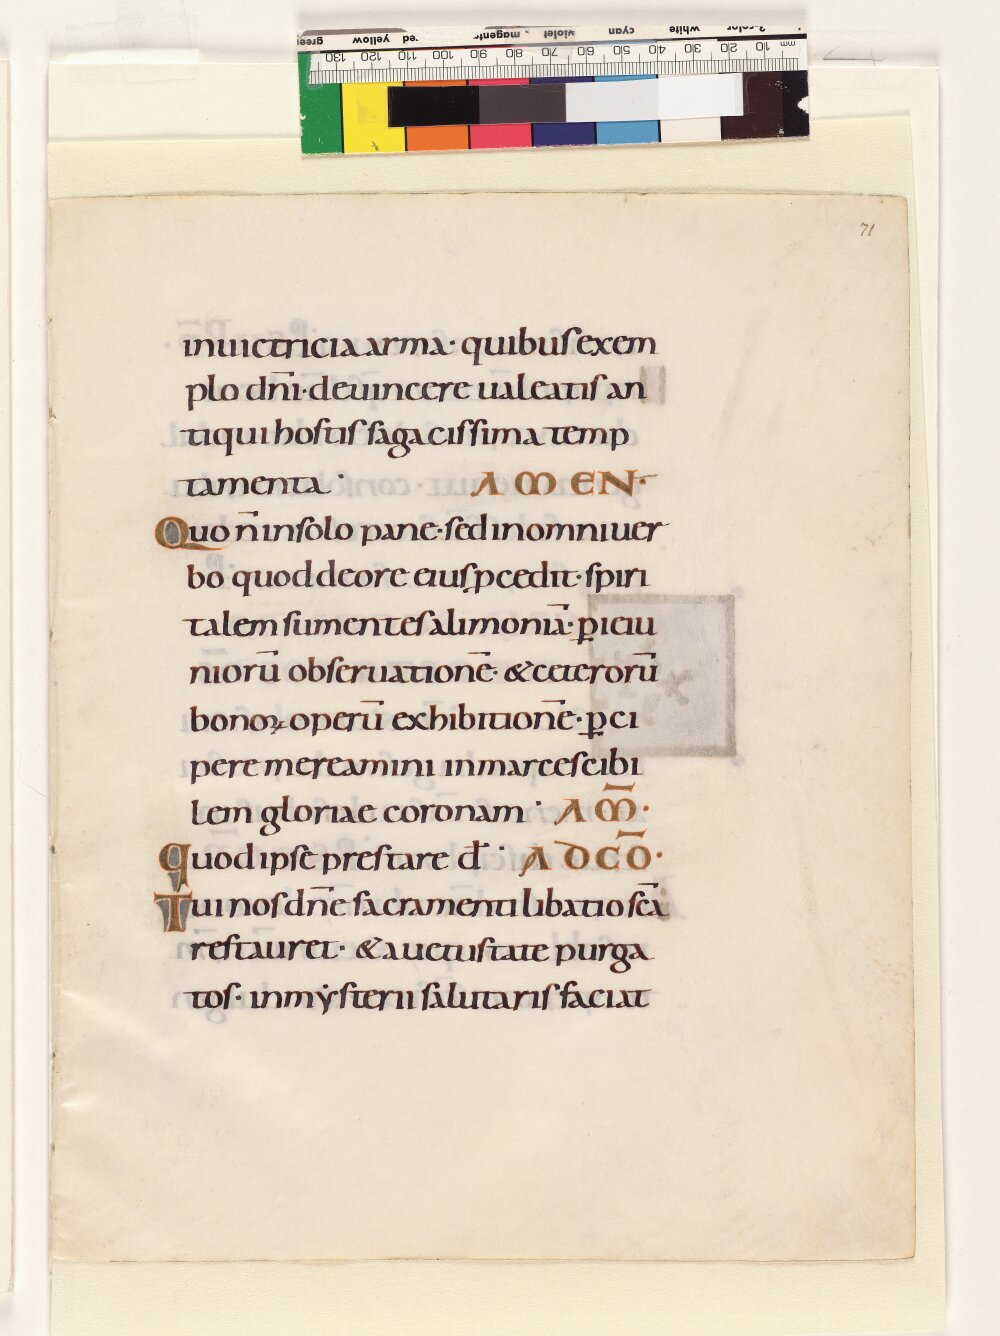 71
inuictricia arma· quibus exem
plo dn̄i· deuincere ualeatis an
tiqui hostis sagacissima temp
tamenta · AMEN·
Quo n̄ in solo pane· sed in omni uer
bo quod de ore eius ꝓcedit· spiri
talem sumentes alimoniā· ꝑ ieiu
niorū obseruationē· & ceterorū
bonoꝝ operū exhibitionē· ꝑci
pere mereamini inmarcescibi
lem gloriae coronam · AM̄·
quod ipse prestare đ · AD CŌ·
Tui nos dn̄e sacramenti libatio sc̄a
restauret· & a uetustate purga
tos· in mẏsterii salutaris faciat